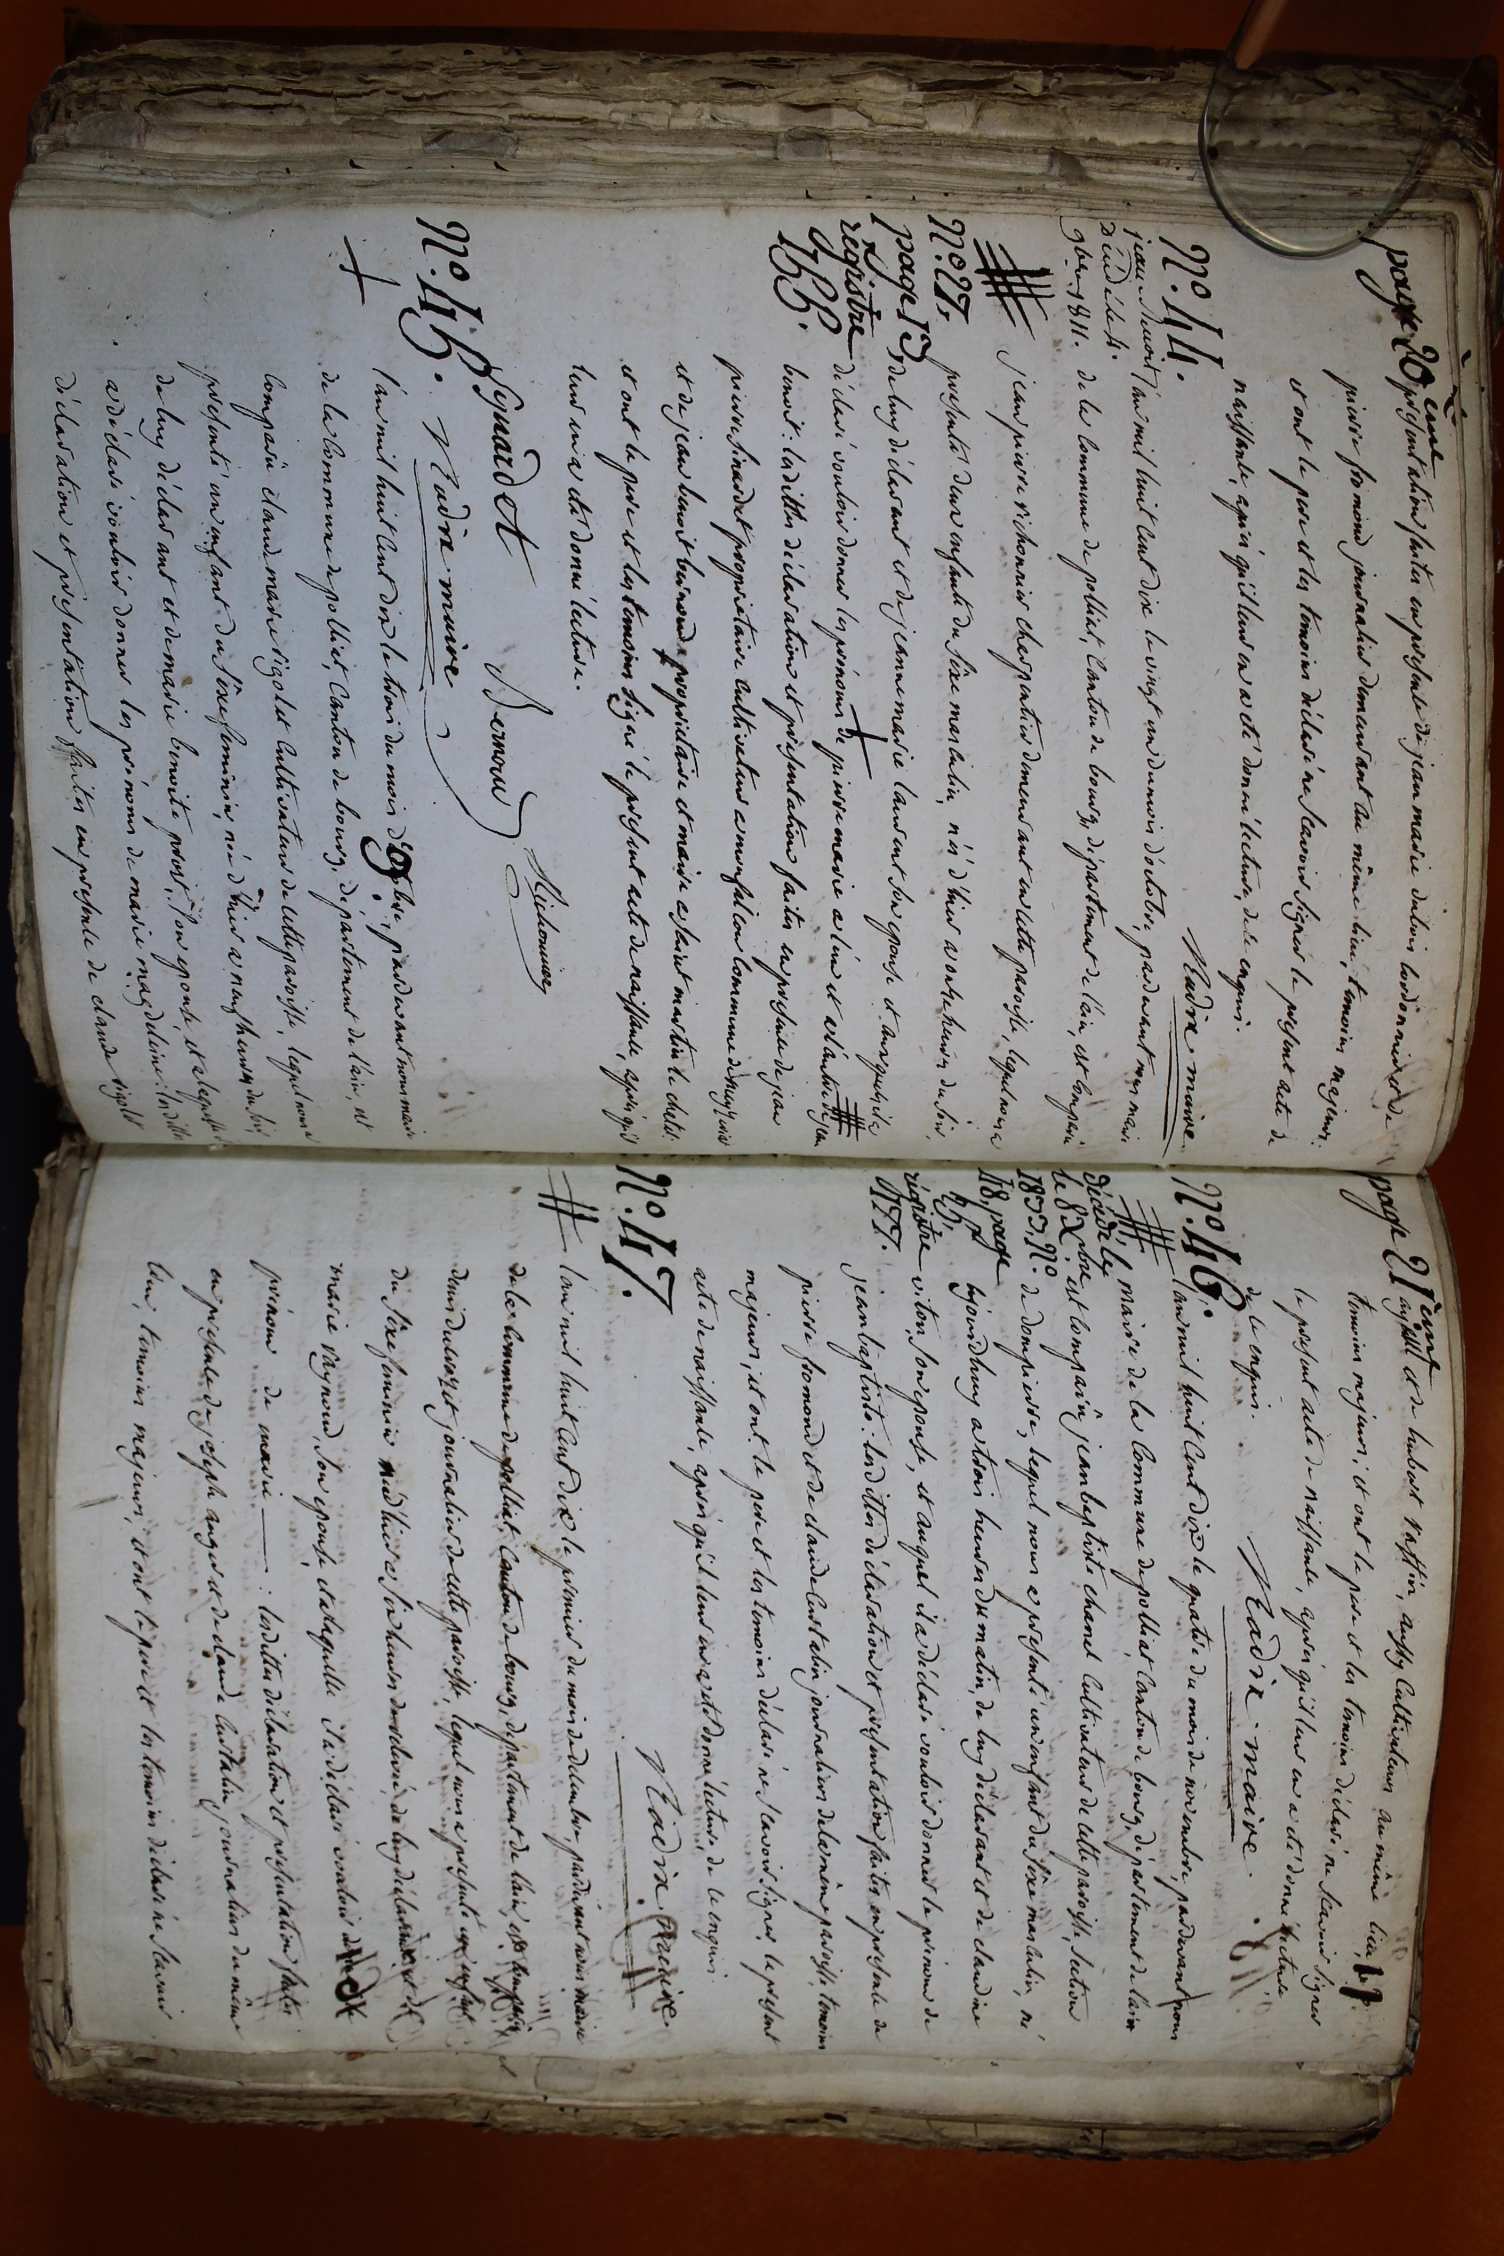 page 20 eme
présentation faites en présence de jean marie dubois cordonnier et de
pierre fromond journalier demeurant au même lieu, témoins majeurs.
et ont le pere et les témoins déclaré ne scavoir signer le présent acte de
naissance, après qu'il leur en a été donné lecture, de ce enquis.
Nadre. maire
N° 44.
jean benoit
Décédé le 4.
9bre. 1811.
N° 27,
page 13
registre
166.
l'an mil huit cent dix le vingt un du mois d'octobre, pardevant nous maire
de la commune de polliat, canton de bourg, département de l'ain, est comparu
jean pierre michonnier charpentier demeurant en cette paroisse, lequel nous a
présenté deux enfants du sexe masculin, nés d'hier a onze heures du soir,
de luy déclarant et de jeanne marie laurent son epouse et auxquels il a
déclaré vouloir donner les prénoms de pierre marie a l'un et a l'autre de jean
benoit: lesdittes déclaration et présentation faites en présence de jean
pierre sinardet propriétaire cultivateur a monfalcon commune de
et de jean benoit bernoud propriétaire et maire a saint martin le chatel
et ont le pere et les témoins signé le présent acte de naissance, après qu'il
leur en a été donné lecture.
Bernoud Michonnier
Nadre. maire
N° 45.
l'an mil huit cent dix le trois du mois d' 9.bre, pardevant nous maire
de la commune de polliat, canton de bourg, département de l'ain, est
comparu claude marie rigolet cultivateur de cette paroisse, lequel nous a
présenté un enfant du sexe feminin, née d'hier a neuf heures du soir,
de luy déclarant et de marie benoite prost, son epouse, et a laquelle il
a déclaré vouloir donner les prénoms de marie magdelaine: lesdittes
déclaration et présentation faites en présence de claude rigolet
page 21 eme
aussi et de hubert raffin, aussy cultivateurs au même lieu,
témoins majeurs; et ont le pere et les témoins déclaré ne scavoir signer
le présent acte de naissance, après qu'il leur en a été donné lecture
de ce enquis.
Nadre. maire.
N° 46.
décédé le
le 8 Xbre
1833, N°
48, page
25,
registre
177.
l'an mil huit cent dix le quatre du mois de novembre, pardevant nous
maire de la commune de polliat canton de bourg, département de l'ain
est comparu jean baptiste chanel cultivateur de cette paroisse, section
de dompierre, lequel nous a présenté un enfant du sexe masculin, né
bejourdhuy a trois heures du matin, de luy déclarant et de claudine
viton, son epouse, et auquel il a déclaré vouloir donner le prénom de
jean baptiste: lesdittes déclaration et présentation faites en présence de
pierre fromond et de claude curtalin journaliers de la même paroisse, témoins
majeurs, et ont le pere et les témoins déclaré ne scavoir signer le présent
acte de naissance, après qu'il leur en a été donné lecture, de ce enquis
Nadre. maire.
N° 47.
l'an mil huit cent dix le premier du mois de décembre, pardevant nous maire
de la commune de polliat, canton de bourg, département de l'ain, est comparu
denis journalier de cette paroisse, lequel nous a présenté un enfant
du sexe feminin née d'hier a six heures du soir, de luy déclarant et de
marie raynaud, son epouse, et a laquelle il a déclaré vouloir donner
prénom de marie: lesdittes déclaration et présentation faites
en présence de joseph anger et de claude curtalin journaliers du même
lieu, témoins majeurs, et ont le pere et les témoins déclaré ne scavoir